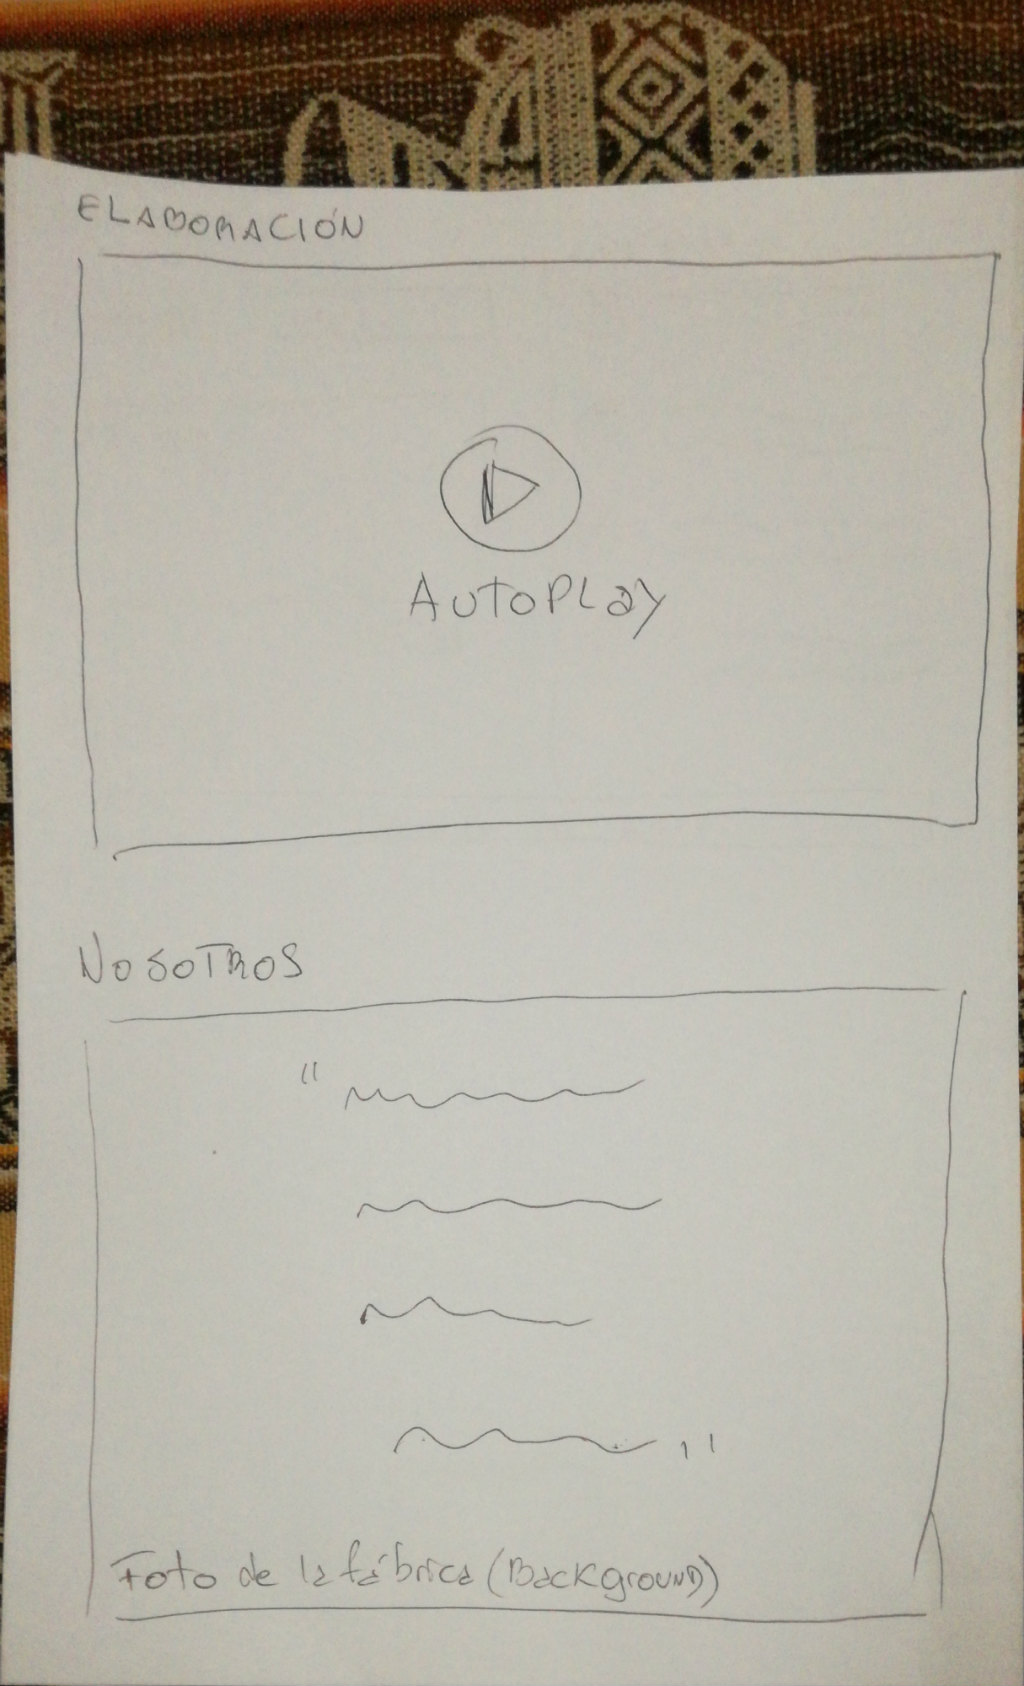 ELABORACIÓN
AUTOPLAY
NOSOTROS
"
"
Foto de la fábrica (BACKGROUND)